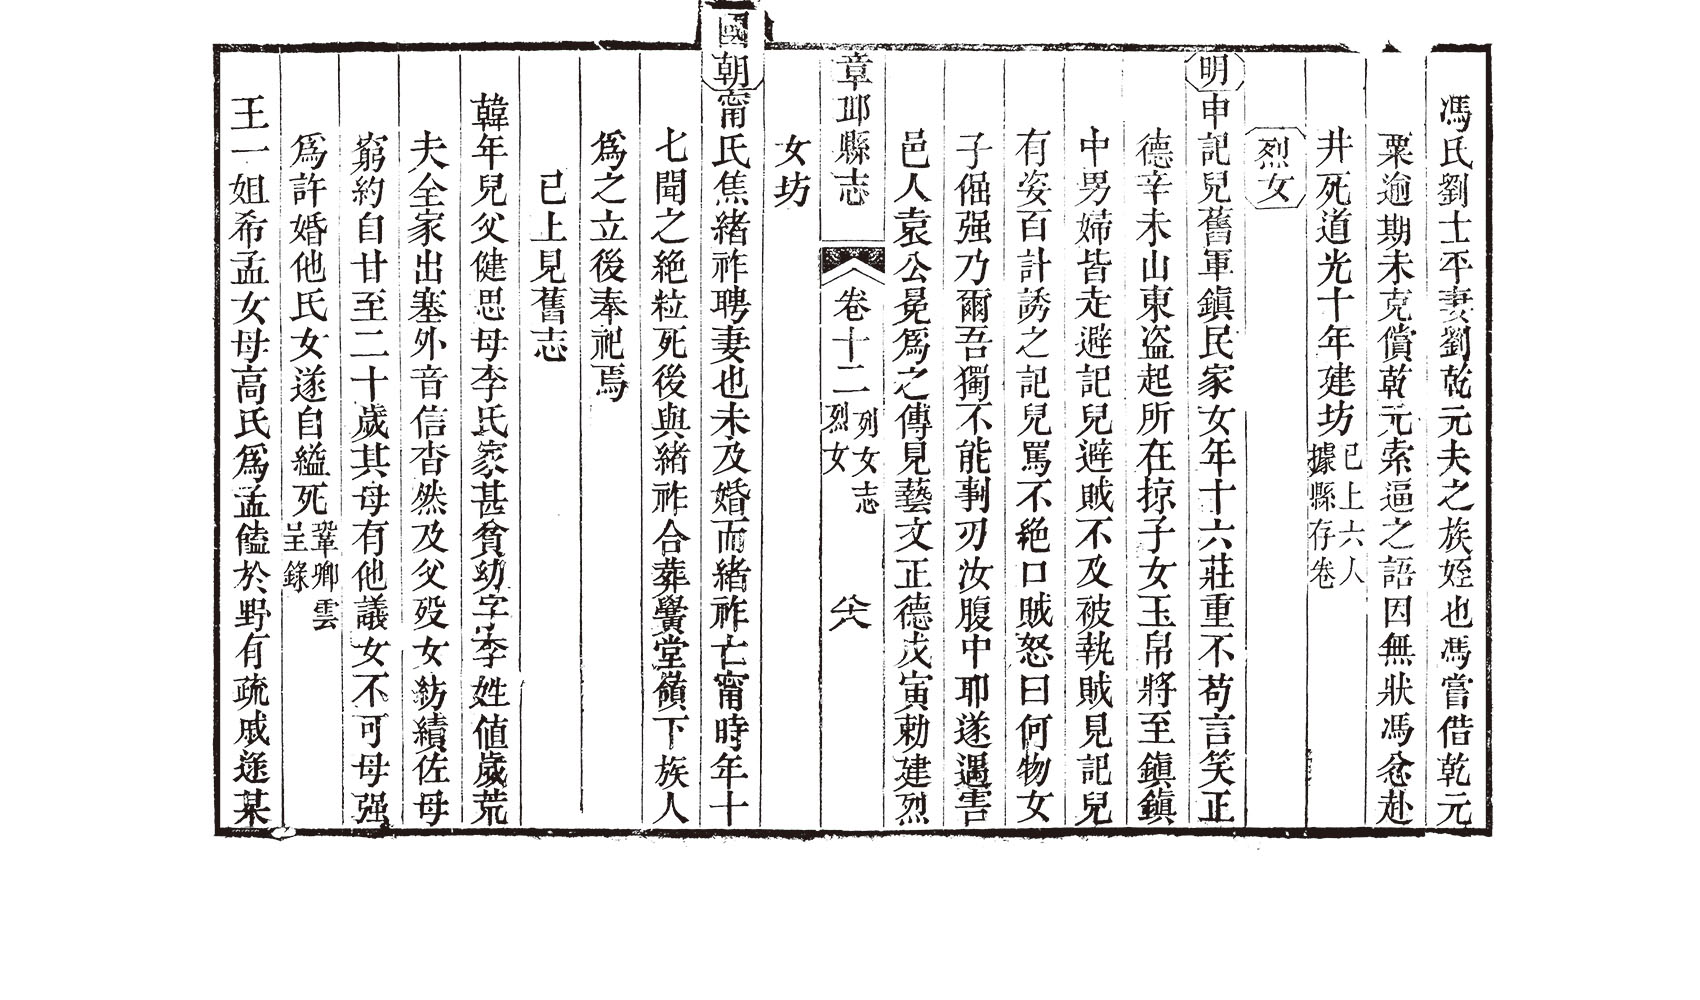 馮氏劉士平妻劉乾元夫之族姪也馮嘗借乾元
粟逾期未克償乾元索逼之語因無狀馮忿赴
井死道光十年建坊已上六人據縣存卷
烈女
明申記兒舊軍鎮民家女年十六莊重不苟言笑正
德辛未山東盗起所在掠子女玉帛將至鎮鎮
中男婦皆走避記兒避賊不及被執賊見記兒
有姿百計誘之記兒罵不絶口賊怒曰何物女
子倔强乃爾吾獨不能剚刃汝腹中耶遂遇害
邑人袁公冕爲之傳見藝文正德戊寅勅建烈
章邱縣志 卷十二 列女志 烈女 六八
女坊
國朝甯氏焦緒祚聘妻也未及婚而緒祚亡甯時年十
七聞之絶粒死後與緒祚合葬黌堂嶺下族人
爲之立後奉祀焉
已上見舊志
韓年兒父健思母李氏家甚貧幼字李姓値歲荒
夫全家出塞外音信杳然及父歿女紡績佐母
窮約自甘至二十歲其母有他議女不可母强
爲許婚他氏女遂自縊死鞏卿雲呈錄
王一姐希孟女母高氏爲孟饁於野有疏戚逕某